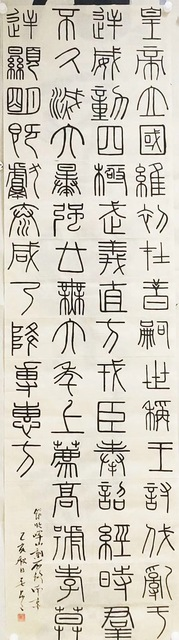 皇帝立國維初在昔嗣世稱王討伐亂
逆威動四極武義直方戎臣奉詔經時
不久滅六暴強廿無六年上薦高號孝
道顯明既獻泰成乃降專惠
嶧山刻石
己亥秋月